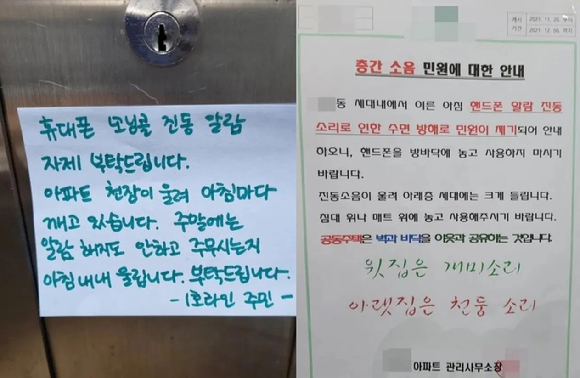 휴대폰 모닝콜 진동 알람
자제 부탁드립니다.
아파트 천장이 울려 아침마다
깨고 있습니다. 주말에는
알람 해지도 안하고 주무시는지
아침 내내 울립니다. 부탁드립니다.
-1호라인 주민-
게시
기간
2021. 11. 25. 부터
2021. 12. 06. 까지
층간 소음 민원에 대한 안내
동 세대내에서 이른 아침 핸드폰 알람 진동
소리로 인한 수면 방해로 민원이 제기되어 안내
하오니, 핸드폰을 방바닥에 놓고 사용하지 마시기
바랍니다.
진동소음이 울려 아래층 세대에는 크게 들립니다.
침대 위나 매트 위에 놓고 사용해주시기 바랍니다.
공동주택은 벽과 바닥을 이웃과 공유하는 것입니다.
윗집은 개미소리
아랫집은 천둥 소리
아파트 관리사무소장